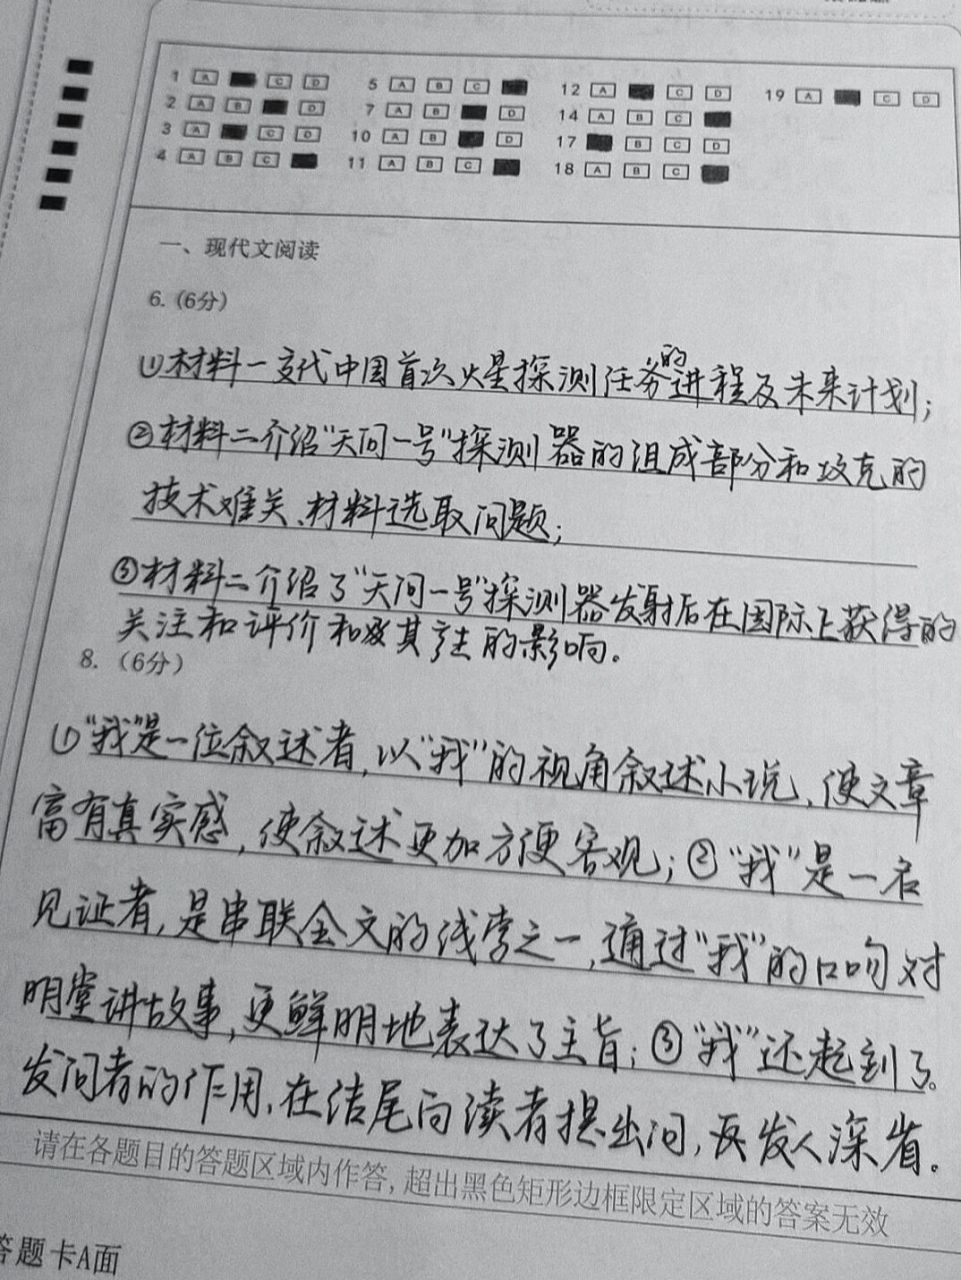 1 [A] [■] [C] [D] 5 [A] [B] [C] [■] 12 [A] [■] [C] [D] 19 [A] [■] [C] [D]
2 [A] [B] [■] [D] 7 [A] [B] [■] [D] 14 [A] [B] [C] [■]
3 [A] [■] [C] [D] 10 [A] [B] [■] [D] 17 [■] [B] [C] [D]
4 [A] [B] [C] [■] 11 [A] [B] [C] [■] 18 [A] [B] [C] [■]
一、现代文阅读
6.(6分)
①材料一交代中国首次火星探测任务的进程及未来计划;
②材料二介绍“天问一号”探测器的组成部分和攻克的
技术难关、材料选取问题;
③材料二介绍了“天问一号”探测器发射后在国际上获得的
关注和评价和及其产生的影响。
8.(6分)
①“我”是一位叙述者,以“我”的视角叙述小说,使文章
富有真实感,使叙述更加方便客观;②“我”是一名
见证者,是串联全文的线索之一,通过“我”的口吻对
明堂讲故事,更鲜明地表达了主旨;③“我”还起到了
发问者的作用,在结尾向读者提出问,发人深省。
请在各题目的答题区域内作答,超出黑色矩形边框限定区域的答案无效
答题卡A面